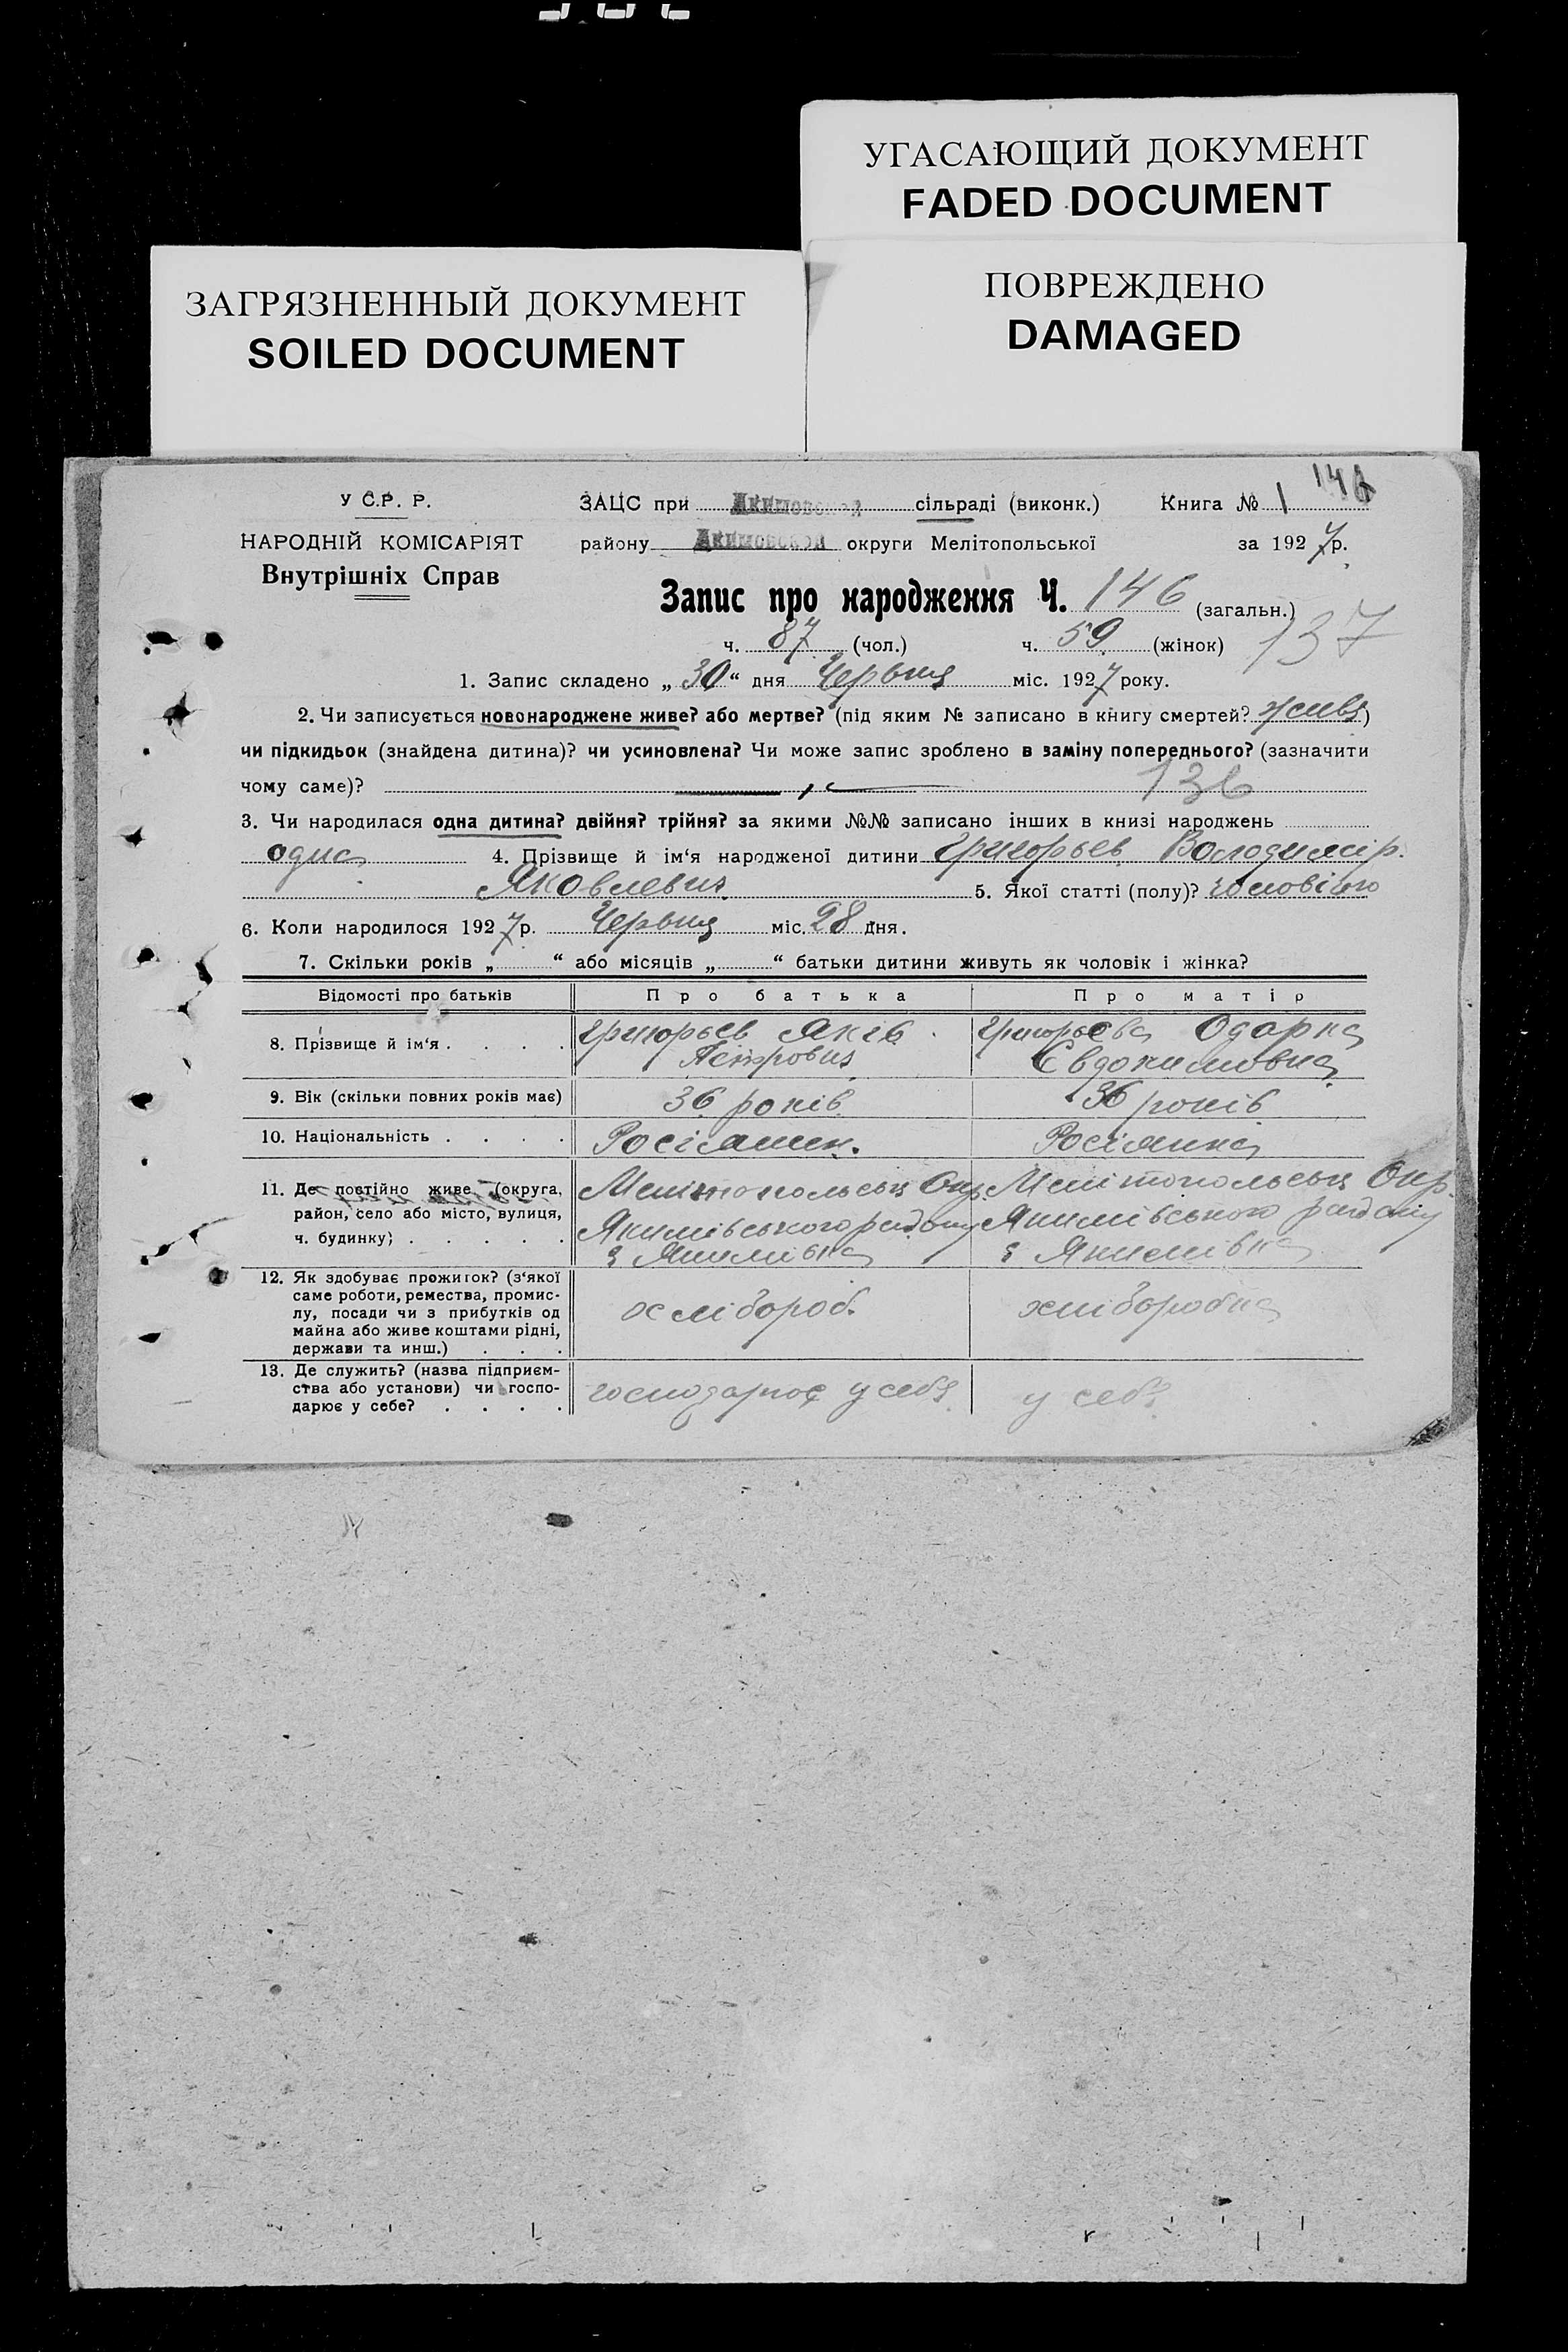 УГАСАЮЩИЙ ДОКУМЕНТ
FADED DOCUMENT
ЗАГРЯЗНЕННЫЙ ДОКУМЕНТ
SOILED DOCUMENT
ПОВРЕЖДЕНО
DAMAGED
У С.Р. Р.
НАРОДНІЙ КОМІСАРІЯТ
Внутрішніх Справ
146
ЗАЦС при Акимовской сільраді (виконк.) Книга № 1
району Акимовской округи Мелітопольської за 1927 р.
Запис про народження Ч. 146 (загальн.)
137
ч. 87 (чол.) ч. 59 (жінок)
1. Запис складено „30“ дня Червня міс. 1927 року.
2. Чи записується новонароджене живе? або мертве? (під яким № записано в книгу смертей? живе)
чи підкидьок (знайдена дитина)? чи усиновлена? Чи може запис зроблено в заміну попереднього? (зазначити
чому саме)? 136
3. Чи народилася одна дитина? двійня? трійня? за якими №№ записано інших в книзі народжень
одна 4. Прізвище й ім‘я народженої дитини Григорьев Володимір
Яковлевич 5. Якої статті (полу)? чоловічого
6. Коли народилося 1927 р. Червня міс. 28 дня.
7. Скільки років „ “ або місяців „ “ батьки дитини живуть як чоловік і жінка?
Відомості про батьків Про батька Про матір
8. Прізвище й ім‘я . . . . Григорьев Яків Петрович Григорьева Одарка Євдокимовна
9. Вік (скільки повних років має) 36 років 36 років
10. Національність . . . . Росіянин. Росіянка
11. Де постійно живе (округа,
район, село або місто, вулиця,
ч. будинку) . . . . .
Мелітопольськ Окр.
Якимівського району
с Якимівка
Мелітопольськ Окр.
Якимівського району
с Якимівка
12. Як здобуває прожиток? (з‘якої
саме роботи, ремества, промис-
лу, посади чи з прибутків од
майна або живе коштами рідні,
держави та инш.) . . .
хлібороб. хліборобка
13. Де служить? (назва підприєм-
ства або установи) чи госпо-
дарює у себе? . . . .
господарює у себе у себе